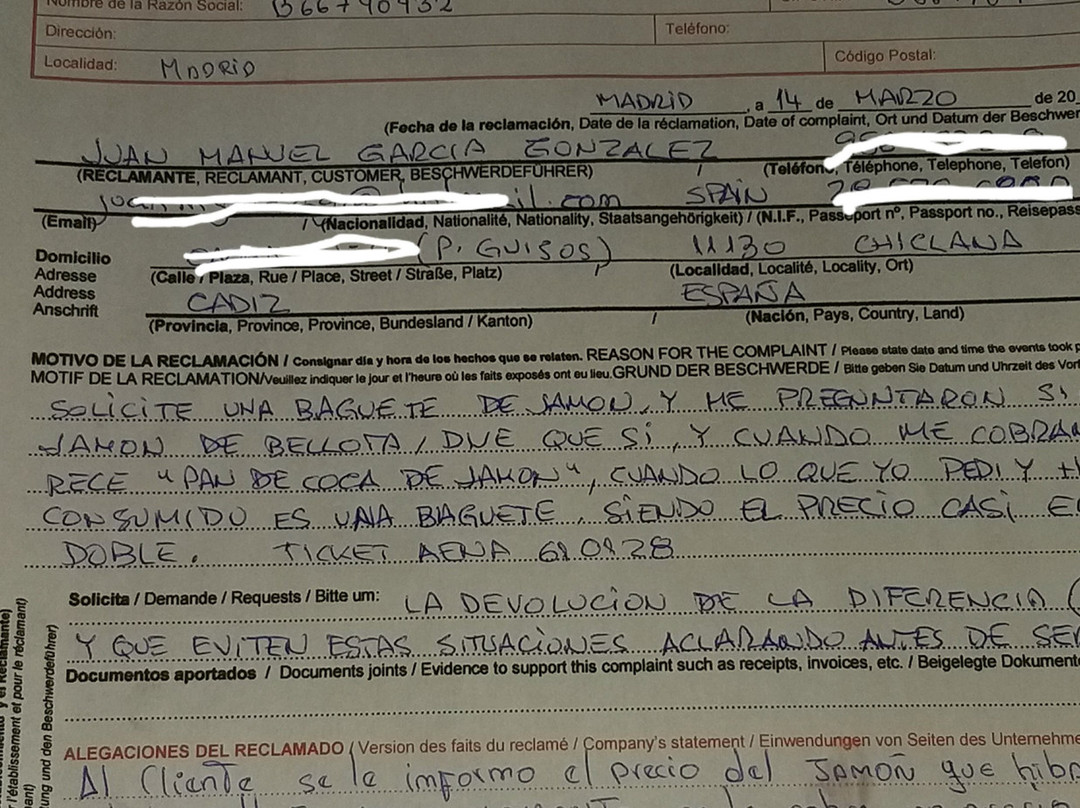 Nombre de la Razón Social: B66790932
Dirección: Teléfono:
Localidad: MADRID Código Postal:
MADRID, a 14 de MARZO de 20
(Fecha de la reclamación, Date de la réclamation, Date of complaint, Ort und Datum der Beschwer
JUAN MANUEL GARCIA GONZALEZ
(RECLAMANTE, RECLAMANT, CUSTOMER, BESCHWERDEFÜHRER) / (Teléfono, Téléphone, Telephone, Telefon)
il.com SPAIN
(Email) / (Nacionalidad, Nationalité, Nationality, Staatsangehörigkeit) / (N.I.F., Passeport nº, Passport no., Reisepass
(P. GUISOS) 11130 CHICLANA
Domicilio
Adresse (Calle / Plaza, Rue / Place, Street / Straße, Platz) (Localidad, Localité, Locality, Ort)
Address CADIZ ESPAÑA
Anschrift (Provincia, Province, Province, Bundesland / Kanton) / (Nación, Pays, Country, Land)
MOTIVO DE LA RECLAMACIÓN / Consignar día y hora de los hechos que se relaten. REASON FOR THE COMPLAINT / Please state date and time the events took p
MOTIF DE LA RECLAMATION/Veuillez indiquer le jour et l'heure où les faits exposés ont eu lieu. GRUND DER BESCHWERDE / Bitte geben Sie Datum und Uhrzeit des Vor
SOLICITE UNA BAGUETE DE JAMON, Y ME PREGUNTARON SI
JAMON DE BELLOTA, DIJE QUE SI, Y CUANDO ME COBRAN
RECE "PAN DE COCA DE JAMON", CUANDO LO QUE YO PEDI Y
CONSUMIDO ES UNA BAGUETE, SIENDO EL PRECIO CASI E
DOBLE. TICKET AENA
Solicita / Demande / Requests / Bitte um: LA DEVOLUCION DE LA DIFERENCIA (
Y QUE EVITEN ESTAS SITUACIONES ACLARANDO ANTES DE SE
Documentos aportados / Documents joints / Evidence to support this complaint such as receipts, invoices, etc. / Beigelegte Dokument
ALEGACIONES DEL RECLAMADO / Version des faits du reclamé / Company's statement / Einwendungen von Seiten des Unternehme
Al Cliente se le informo el precio del JAMON que
l'établissement et pour le réclamant)
tung und den Beschwerdeführer)